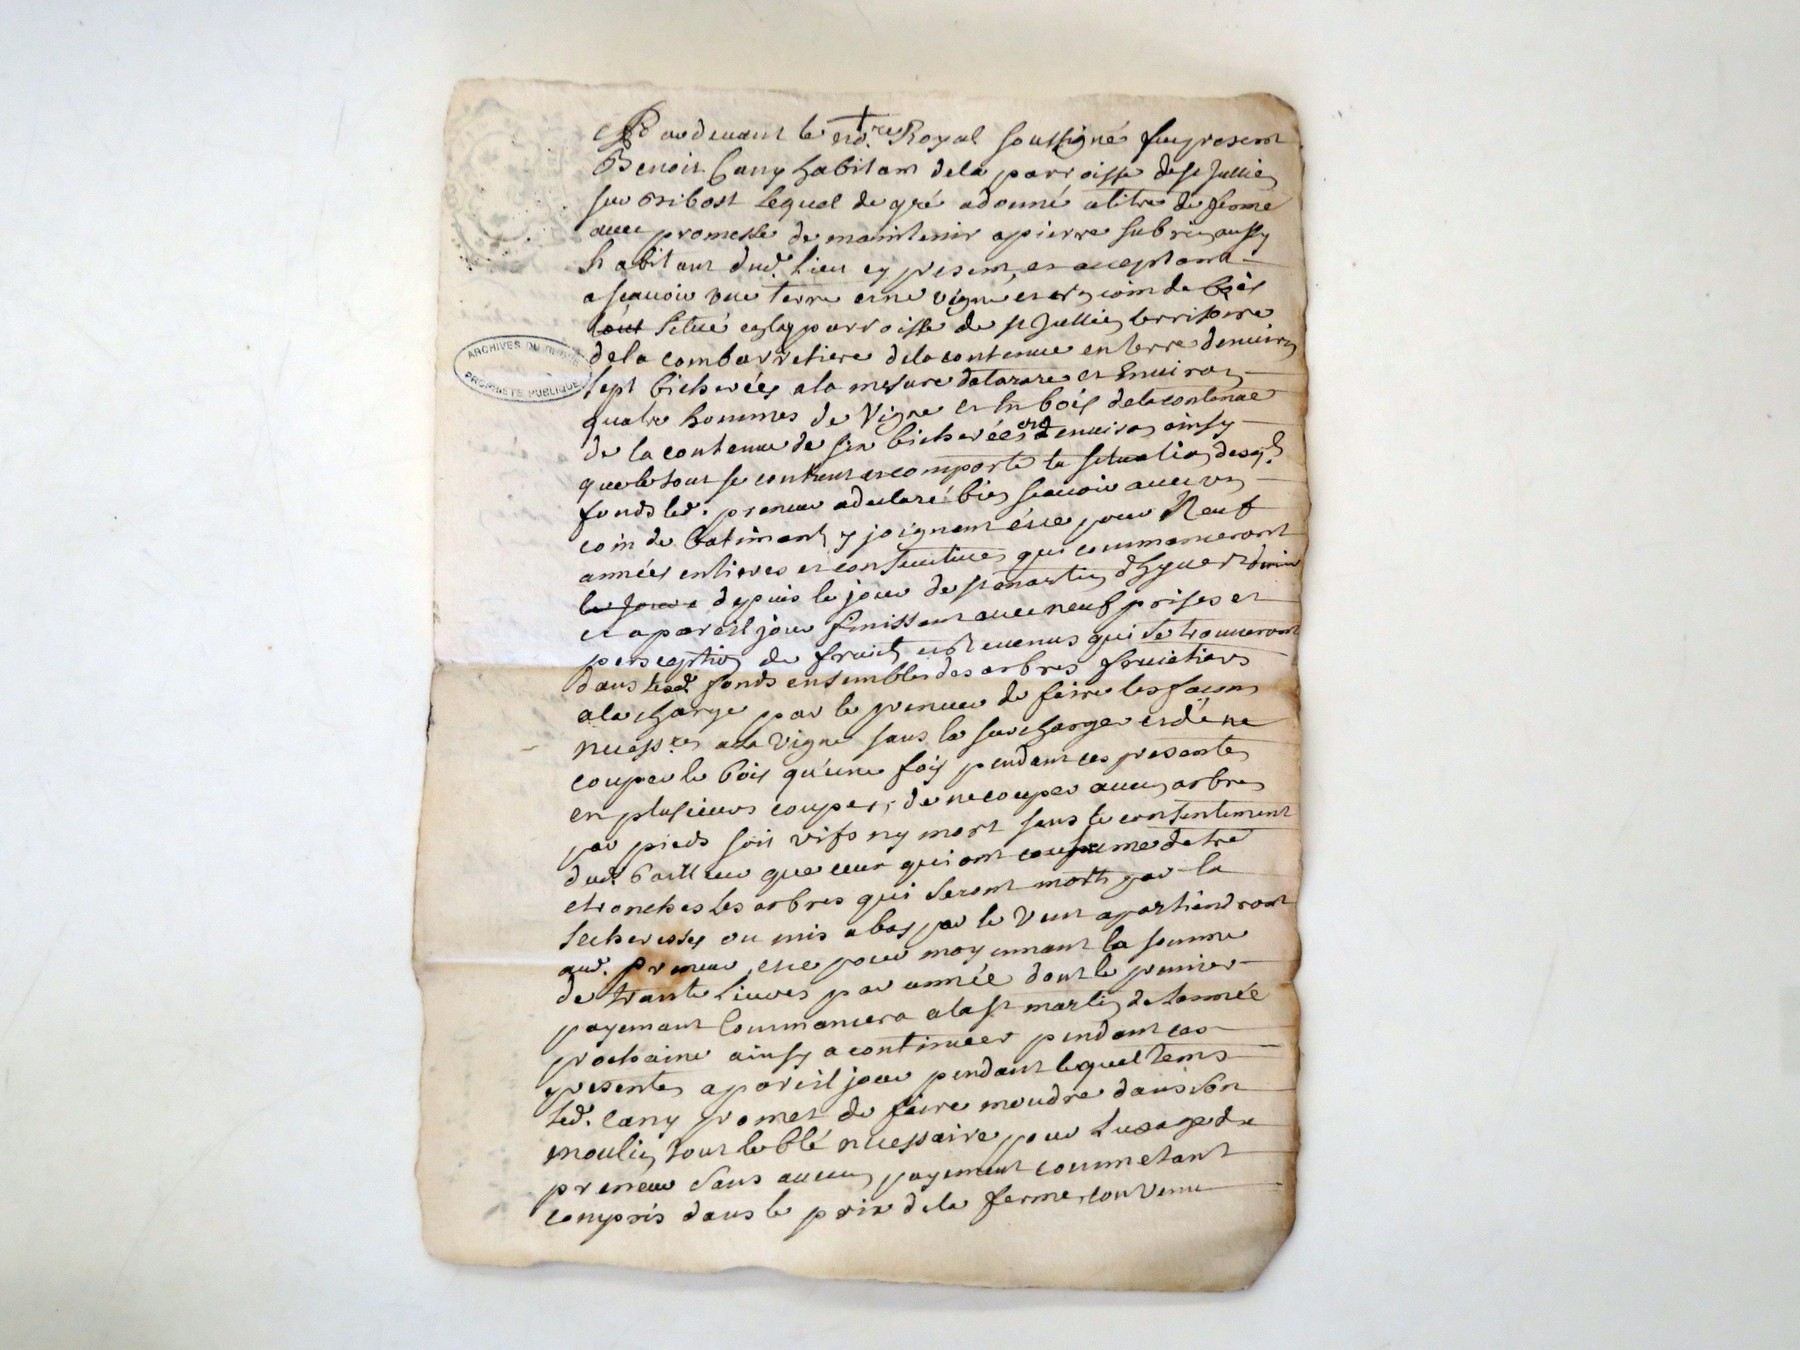 Pardevant le no.re Royal soussigné fut present
Benoit Cany habitant dela parroisse de st Jullien
sur Bibost Lequel de gré a donné a titre de ferme
avec promesse de maintenir a pierre subrin aussy
habitant dud. Lieu cy present et acceptant
a scavoir une terre et une vigne et un coin de bois
tout Situé en la parroisse de st Jullien territoire
dela combarretiere dela contenue en terre denviron
sept bicherées a la mesure de tarare et Environ
quatre hommes de Vigne et Un bois dela contenue
de la contenue de six bicherées ou environ ainsy
que le tout se contient et comporte la situation desq.ls
fonds led. preneur a declaré bien scavoir avec un
coin de batiment y joignant et ce pour Neuf
années entieres et consecutives qui commanceront
le jour depuis le jour de st martin dhyver dernier
et a pareil jour finissant avec neuf prises et
perception de fruits et revenus qui se trouveront
dans lesd. fonds ensembles des arbres fruictiers
ala charge par le preneur de faire les façons
necess.res a la vigne sans la surcharger et de ne
couper le bois qu'une fois pendant ces presentes
en plusieurs coupes, de ne couper aucun arbres
par pieds soit vifs ny mort sans le consentement
dud. bailleur que ceux qui ont coutume detre
etronches les arbres qui seront morts par la
secheresses ou mis a bas par le Vent apartiendront
aud. preneur, et ce pour moyennant la somme
de trante Livres par année dont le premier
payemant Commancera a la st martin de Lannée
prochaine ainsy a continuer pendant ces
presentes a pareil jour pendant lequel tems
led. Cany promet de faire moudre dans son
moulin tout le blé necessaire pour Lusage du
preneur sans aucun payement comme etant
compris dans le prix de la ferme convenue
ARCHIVES DU RHONE
PROPRIETE PUBLIQUE